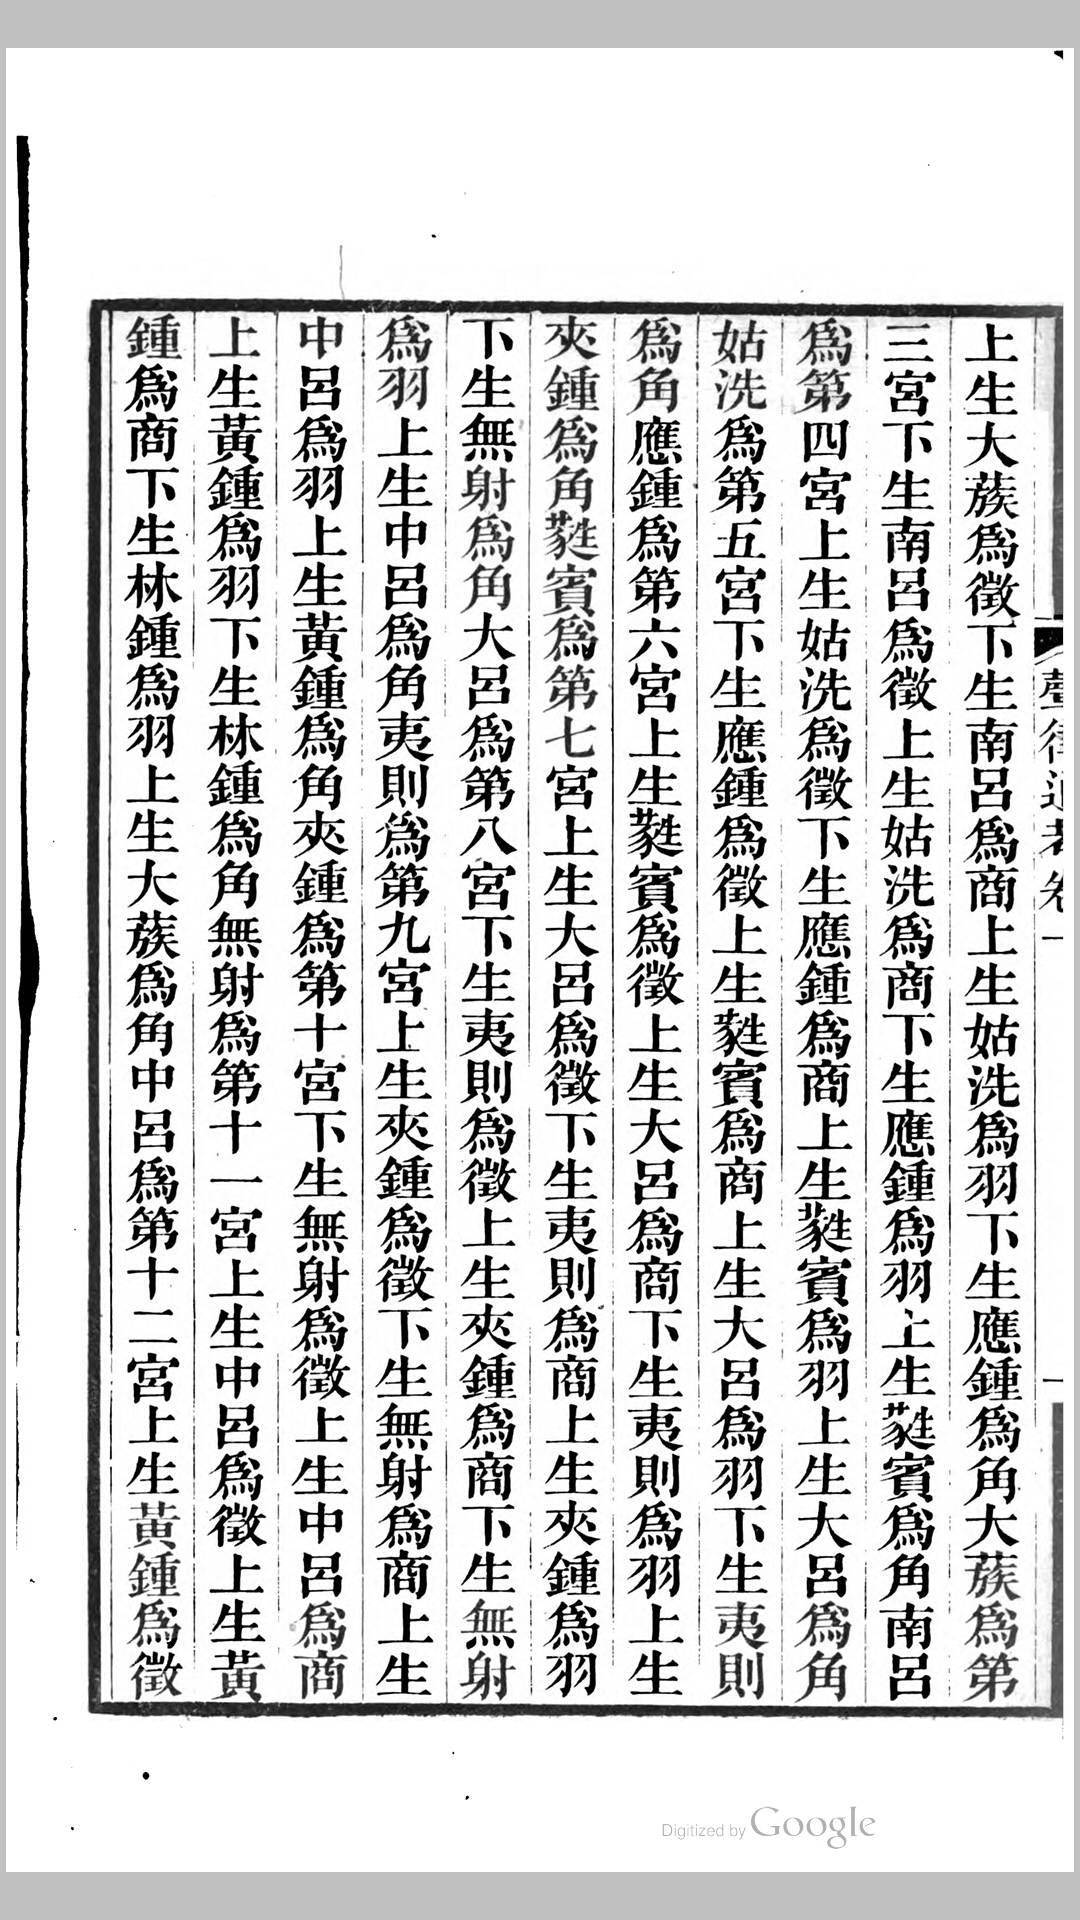 聲律通考卷一
一
上生大蔟爲徵下生南呂爲商上生姑洗爲羽下生應鍾爲角大蔟爲第
三宮下生南呂爲徵上生姑洗爲商下生應鍾爲羽上生蕤賓爲角南呂
爲第四宮上生姑洗爲徵下生應鍾爲商上生蕤賓爲羽上生大呂爲角
姑洗爲第五宮下生應鍾爲徵上生蕤賓爲商上生大呂爲羽下生夷則
爲角應鍾爲第六宮上生蕤賓爲徵上生大呂爲商下生夷則爲羽上生
夾鍾爲角蕤賓爲第七宮上生大呂爲徵下生夷則爲商上生夾鍾爲羽
下生無射爲角大呂爲第八宮下生夷則爲徵上生夾鍾爲商下生無射
爲羽上生中呂爲角夷則爲第九宮上生夾鍾爲徵下生無射爲商上生
中呂爲羽上生黃鍾爲角夾鍾爲第十宮下生無射爲徵上生中呂爲商
上生黃鍾爲羽下生林鍾爲角無射爲第十一宮上生中呂爲徵上生黃
鍾爲商下生林鍾爲羽上生大蔟爲角中呂爲第十二宮上生黃鍾爲徵
Digitized by Google